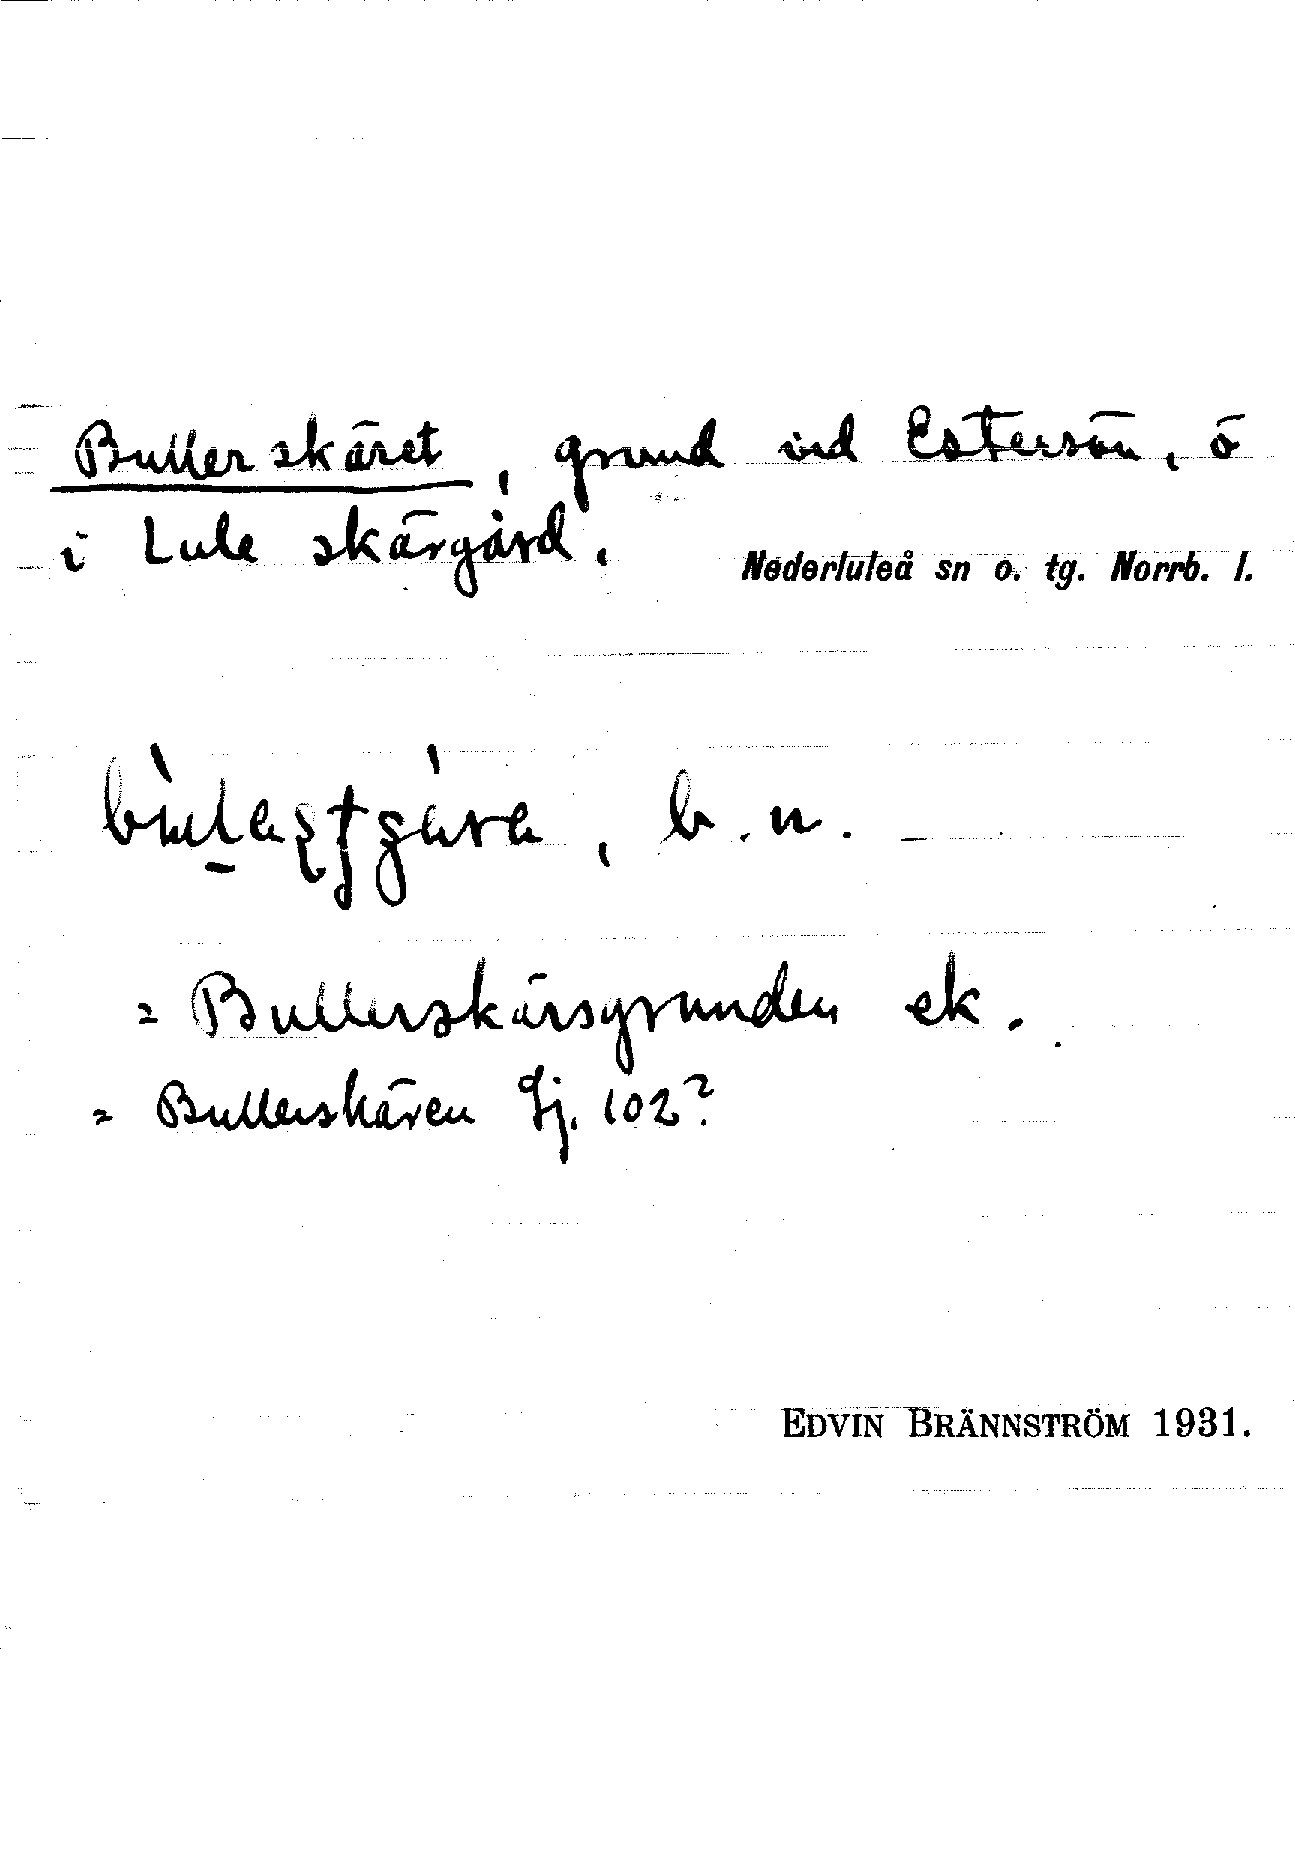 Bullerskäret, grund vid Estersön, ö
i Lule skärgård.
Nederluleå sn o. tg. Norrb. l.
, b. n.
= Bullerskärsgrunden ek.
= Bullerskären Sj. 102?
EDVIN BRÄNNSTRÖM 1931.